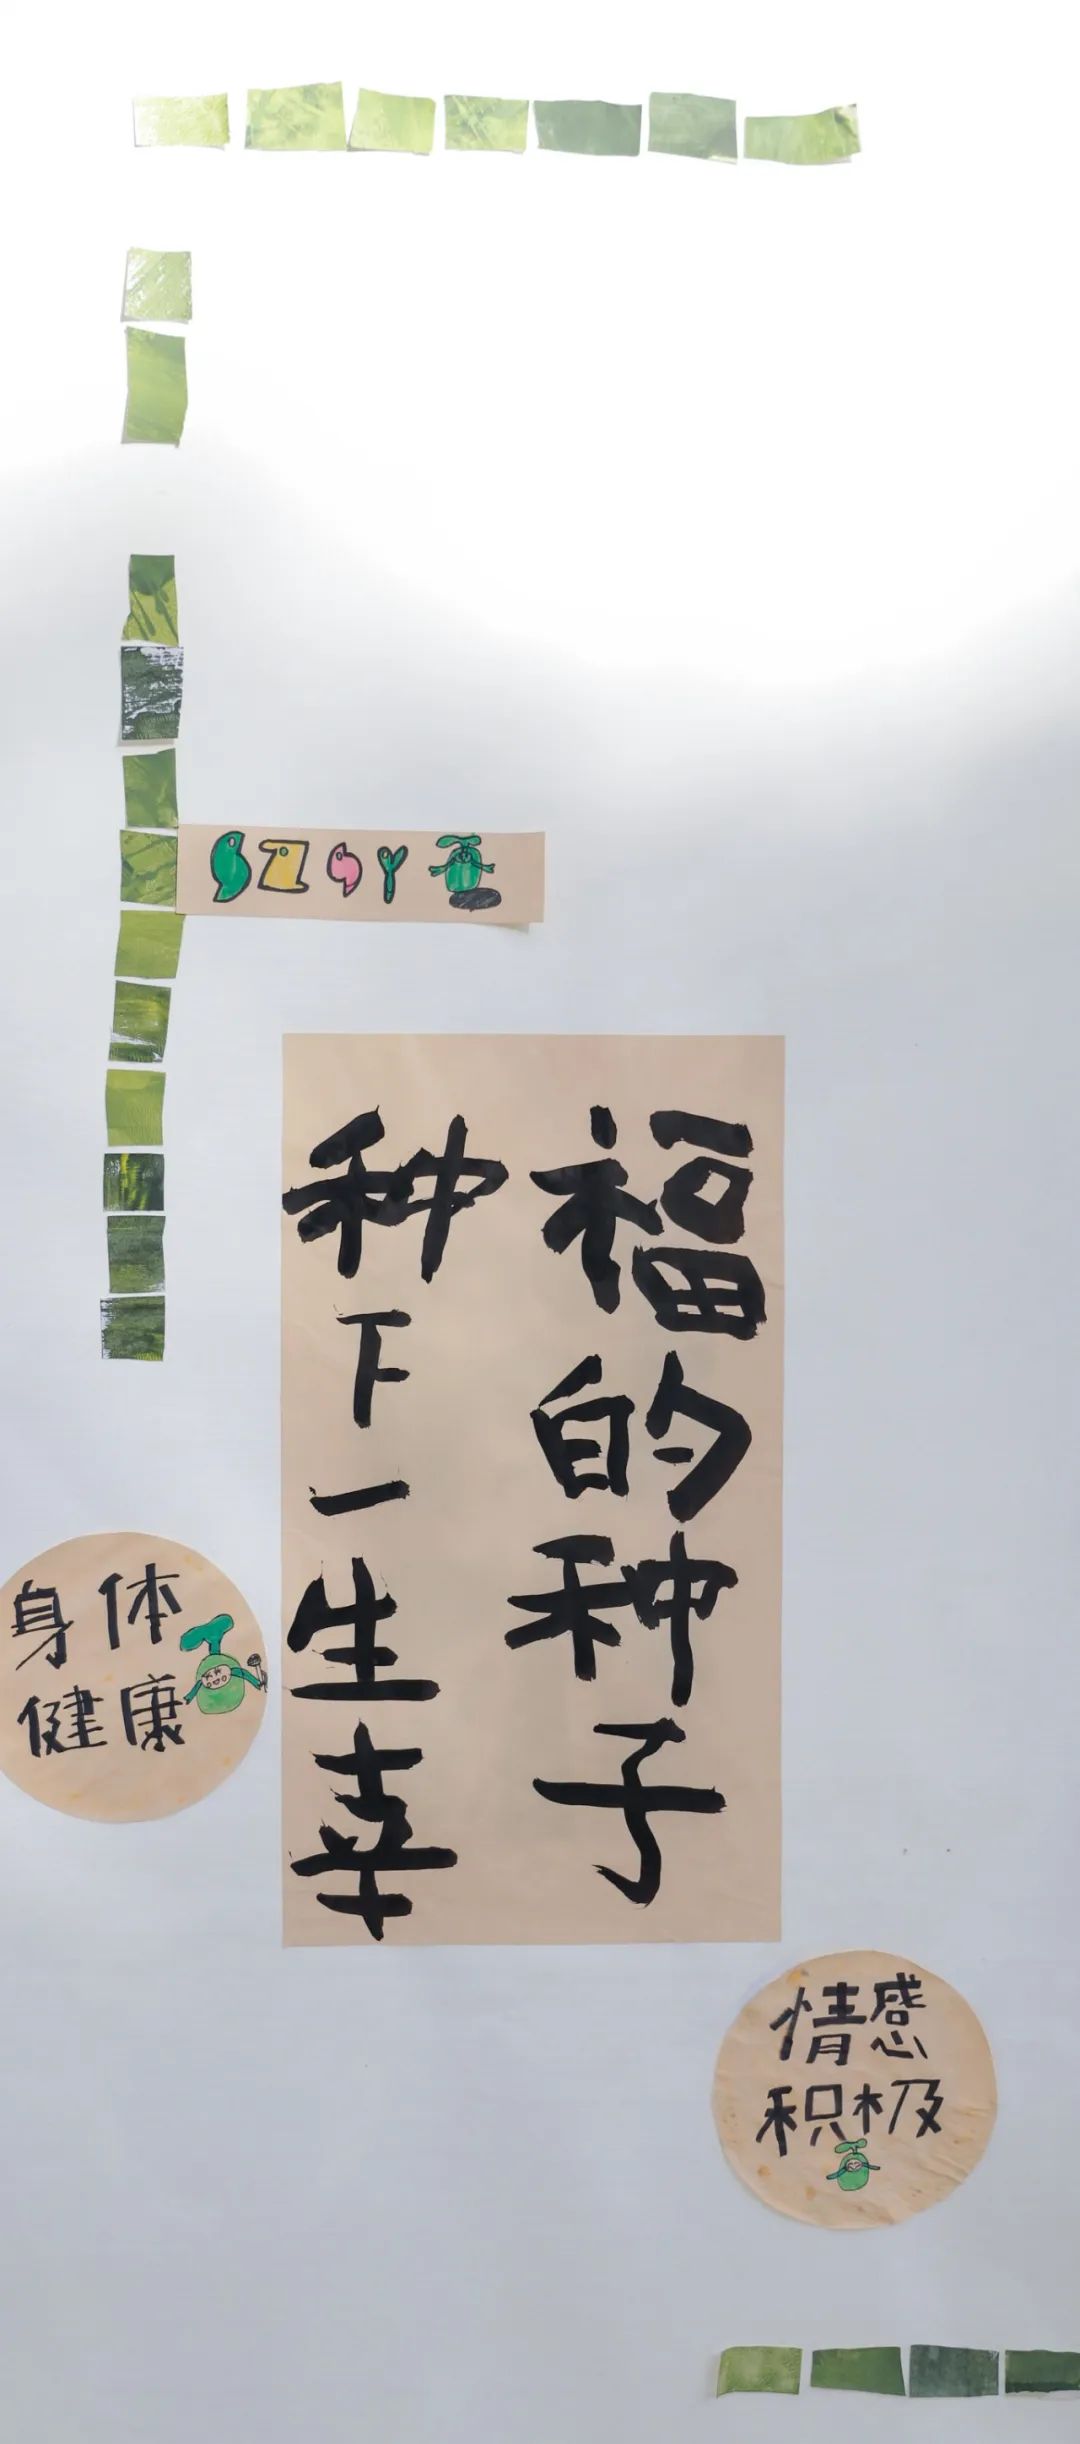 种下一生幸
福的种子
身体
健康
情感
积极